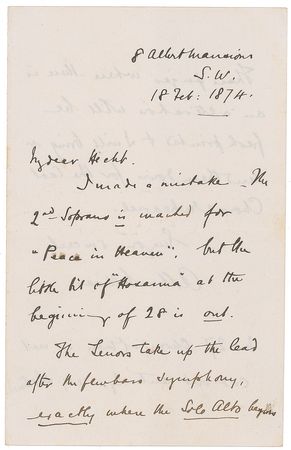 8 Albert Mansions
S.W.
18 Feb: 1874.
My dear Hecht.
I made a mistake - The
2nd Soprano is marked for
"Peace in Heaven", but the
little bit of "Hosanna" at the
beginning of 28 is out.
The Tenors take up the lead
after the few bars symphony,
exactly where the Solo Alto begins